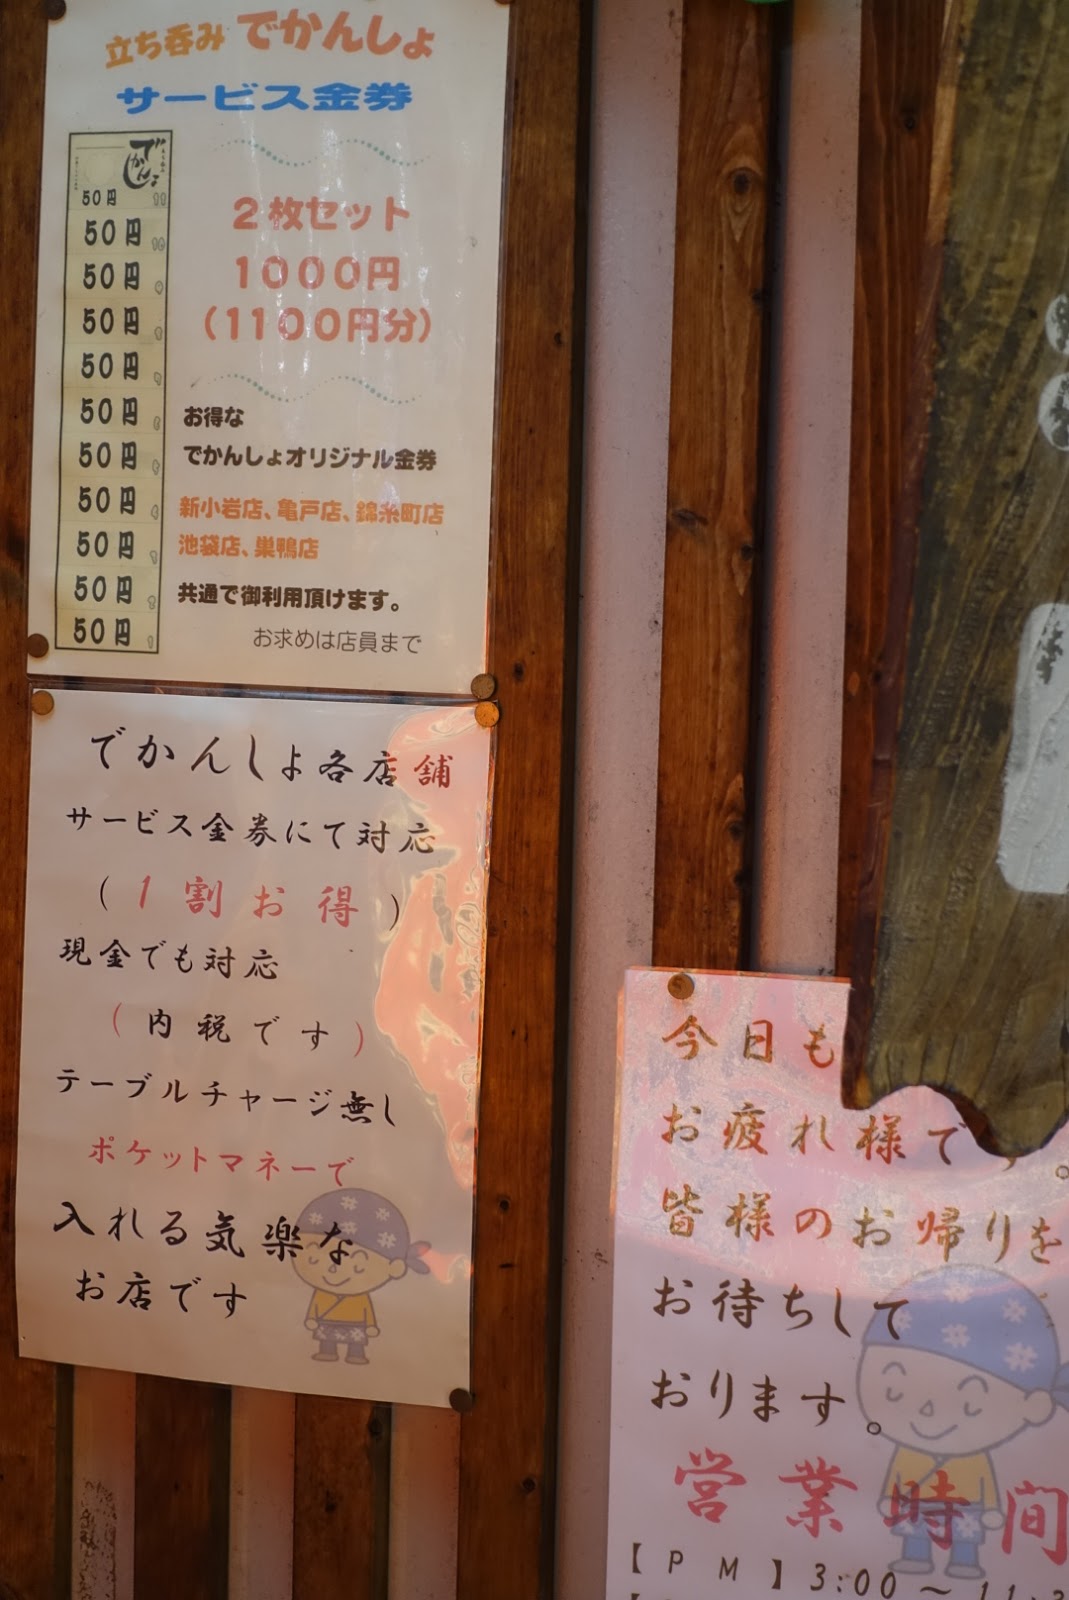 立ち呑み でかんしょ
サービス金券
でかんしょ
50円 11
50円 10
50円
50円
50円
50円
50円
50円
50円
50円
50円
2枚セット
1000円
(1100円分)
お得な
でかんしょオリジナル金券
新小岩店、亀戸店、錦糸町店
池袋店、巣鴨店
共通で御利用頂けます。
お求めは店員まで
でかんしょ各店舗
サービス金券にて対応
(1割お得)
現金でも対応
(内税です)
テーブルチャージ無し
ポケットマネーで
入れる気楽な
お店です
今日も
お疲れ様です。
皆様のお帰りを
お待ちして
おります。
営業時間
【PM】3:00～11:3